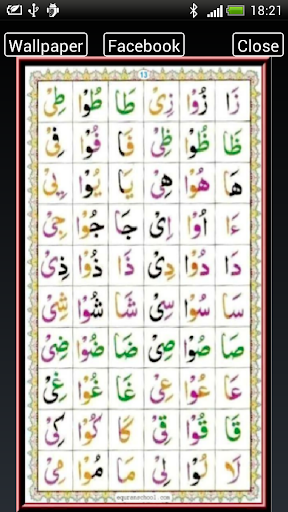 18:21
Wallpaper Facebook Close
13
زَا زُوْا زِىْ طَا طُوْا طِىْ
ظَا ظُوْا ظِىْ فَا فُوْا فِىْ
هَا هُوْا هِىْ يَا يُوْا يِىْ
ءَا اُوْا اِىْ جَا جُوْا جِىْ
دَا دُوْا دِىْ ذَا ذُوْا ذِىْ
سَا سُوْا سِىْ شَا شُوْا شِىْ
صَا صُوْا صِىْ ضَا ضُوْا ضِىْ
عَا عُوْا عِىْ غَا غُوْا غِىْ
قَا قُوْا قِىْ كَا كُوْا كِىْ
لَا لُوْا لِىْ مَا مُوْا مِىْ
equranschool.com